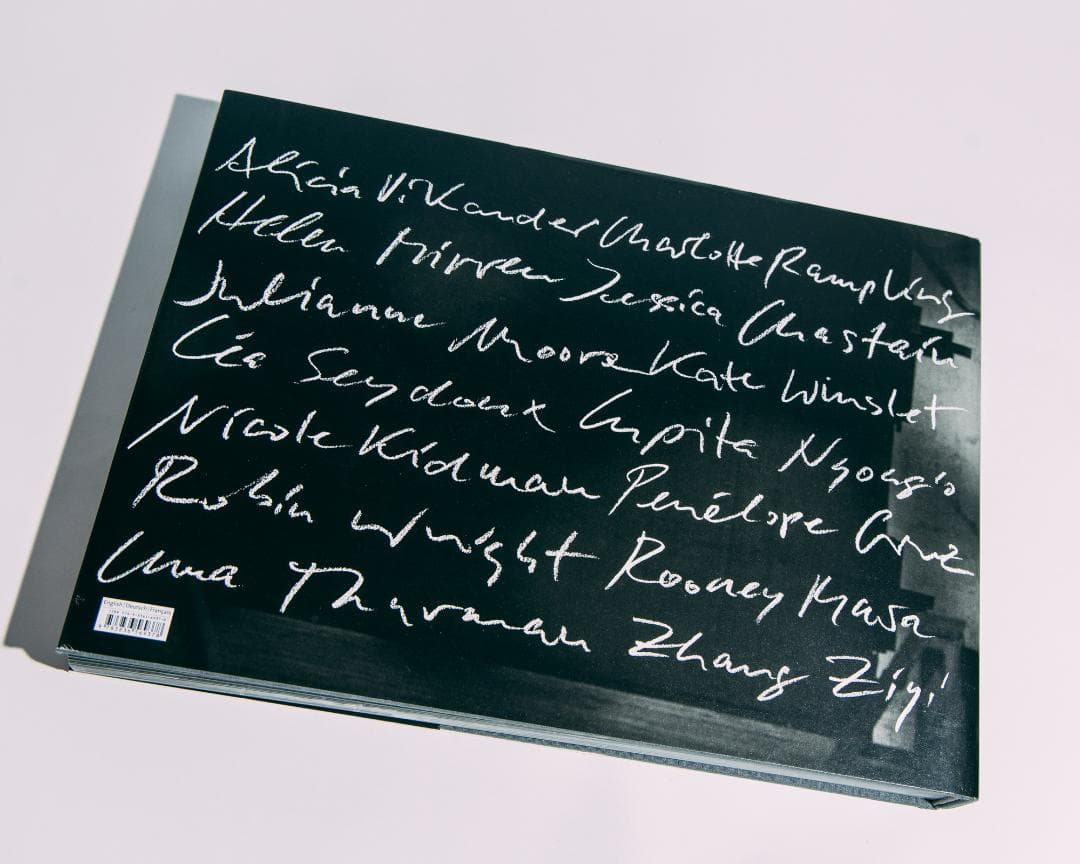 Alicia Vikander Charlotte Rampling
Helen Mirren Jessica Chastain
Julianne Moore Kate Winslet
Léa Seydoux Lupita Nyong'o
Nicole Kidman Penélope Cruz
Robin Wright Rooney Mara
Uma Thurman Zhang Ziyi
English/Deutsch/Français